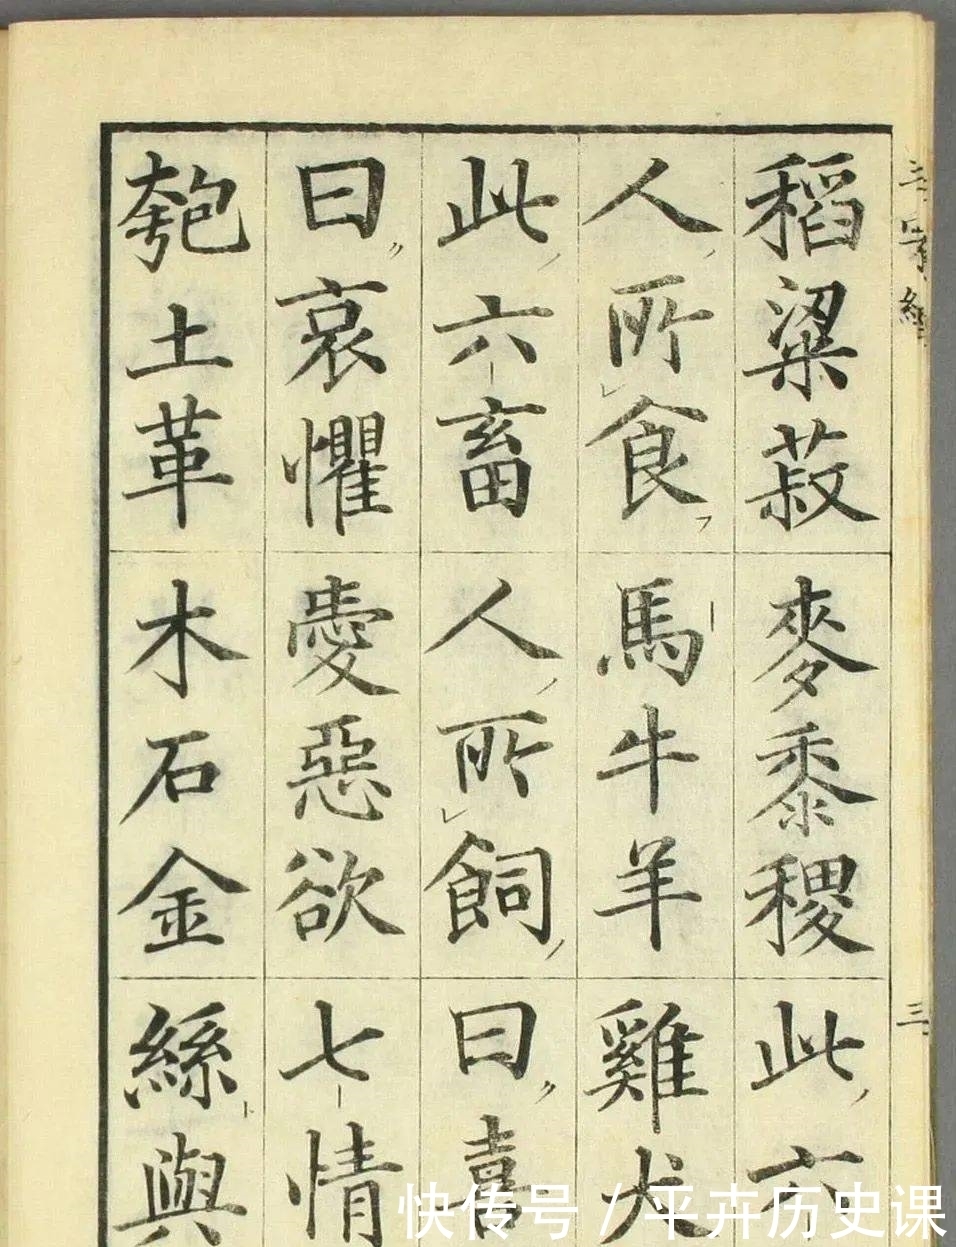 稻粱菽麥黍稷此六
人所食馬牛羊雞犬
此六畜人所飼曰喜
曰哀懼愛惡欲七情
匏土革木石金絲與
三字經
三
快传号 / 平卉历史课